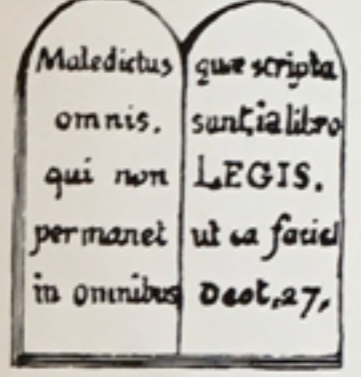 Maledictus
omnis.
qui non
permanet
in omnibus
quæ scripta
sunt, ia libro
LEGIS.
ut ea faciet
Deot, 27,